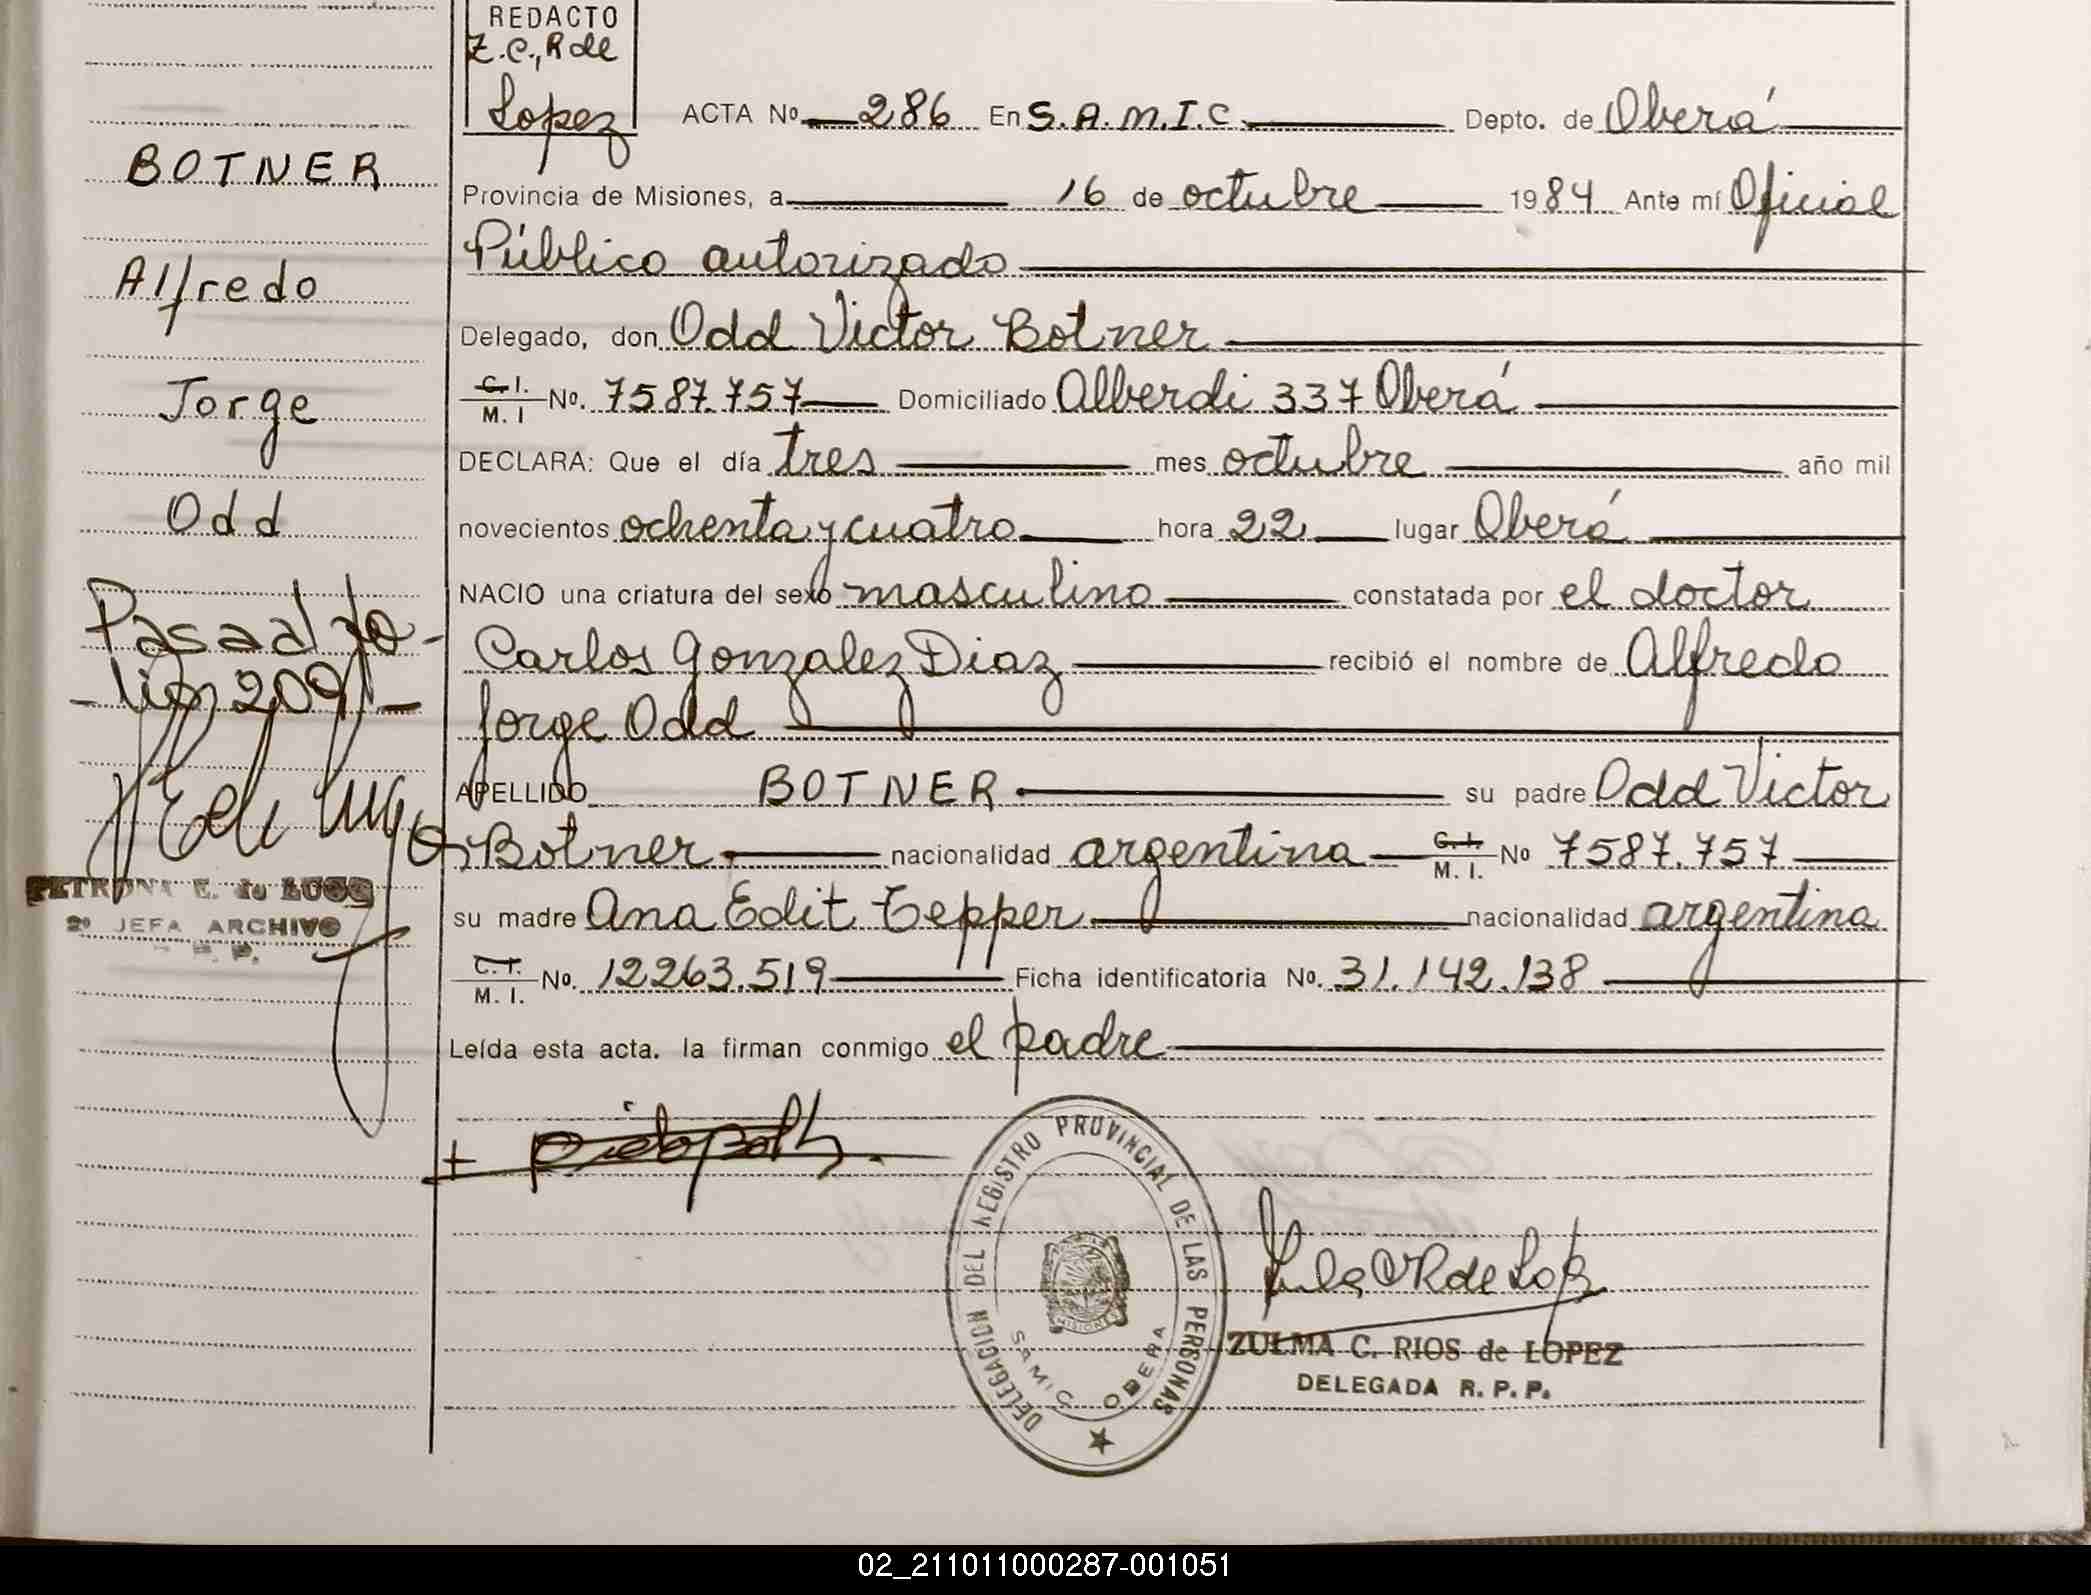 REDACTO
Z.C., R de
Lopez
ACTA Nº 286 En S.A.M.I.C. Depto. de Oberá
Provincia de Misiones, a 16 de octubre 1984 Ante mí Oficial
Público autorizado
Delegado, don Odd Victor Botner
C.I. M.I Nº. 7587.757 Domiciliado Alberdi 337 Oberá
DECLARA: Que el día tres mes octubre año mil
novecientos ochenta y cuatro hora 22 lugar Oberá
NACIO una criatura del sexo masculino constatada por el doctor
Carlos Gonzalez Diaz recibió el nombre de Alfredo
Jorge Odd
APELLIDO BOTNER su padre Odd Victor
Botner nacionalidad argentina C.I. M.I. Nº 7587.757
su madre Ana Edit Tepper nacionalidad argentina
C.I. M.I. Nº. 12263.519 Ficha identificatoria No. 31.142.138
Leída esta acta. la firman conmigo el padre
BOTNER
Alfredo
Jorge
Odd
Pasa al fo-
209
PETRONA E. de LUGO
2º JEFA ARCHIVO
DELEGACION DEL REGISTRO PROVINCIAL DE LAS PERSONAS
SAMIC OBERA
MISIONES
ZULMA C. RIOS de LOPEZ
DELEGADA R. P. P.
02_211011000287-001051